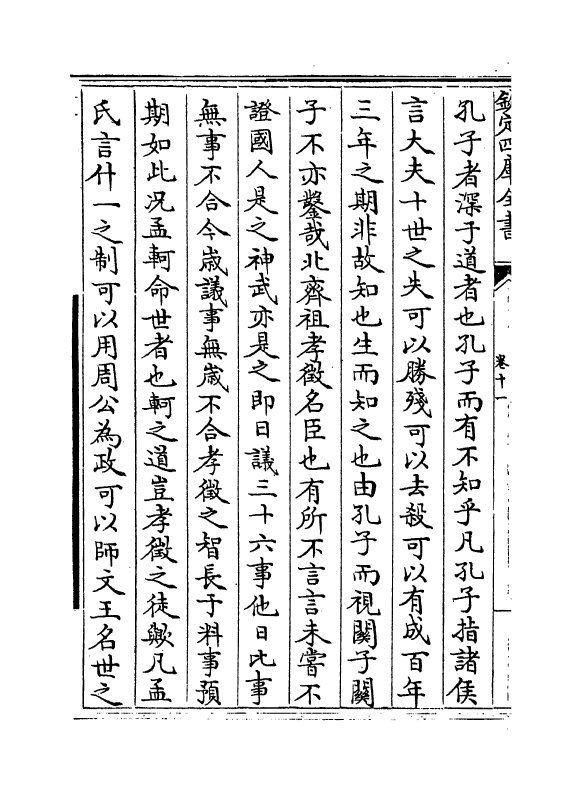 欽定四庫全書
卷十一
孔子者深于道者也孔子而有不知乎凡孔子指諸侯
言大夫十世之失可以勝殘可以去殺可以有成百年
三年之期非故知也生而知之也由孔子而視闗子闗
子不亦鑿哉北齊祖孝徵名臣也有所不言言未嘗不
證國人是之神武亦是之即日議三十六事他日比事
無事不合今嵗議事無嵗不合孝徵之智長于料事預
期如此况孟軻命世者也軻之道豈孝徵之徒歟凡孟
氏言什一之制可以用周公為政可以師文王名世之